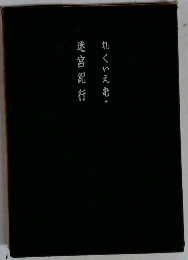 れくいえむ・
迷宮紀行